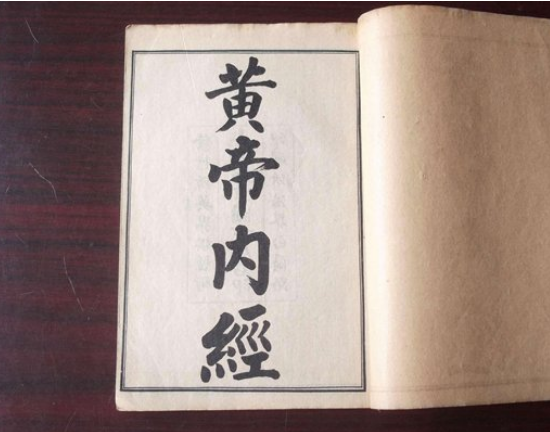 黃帝內經